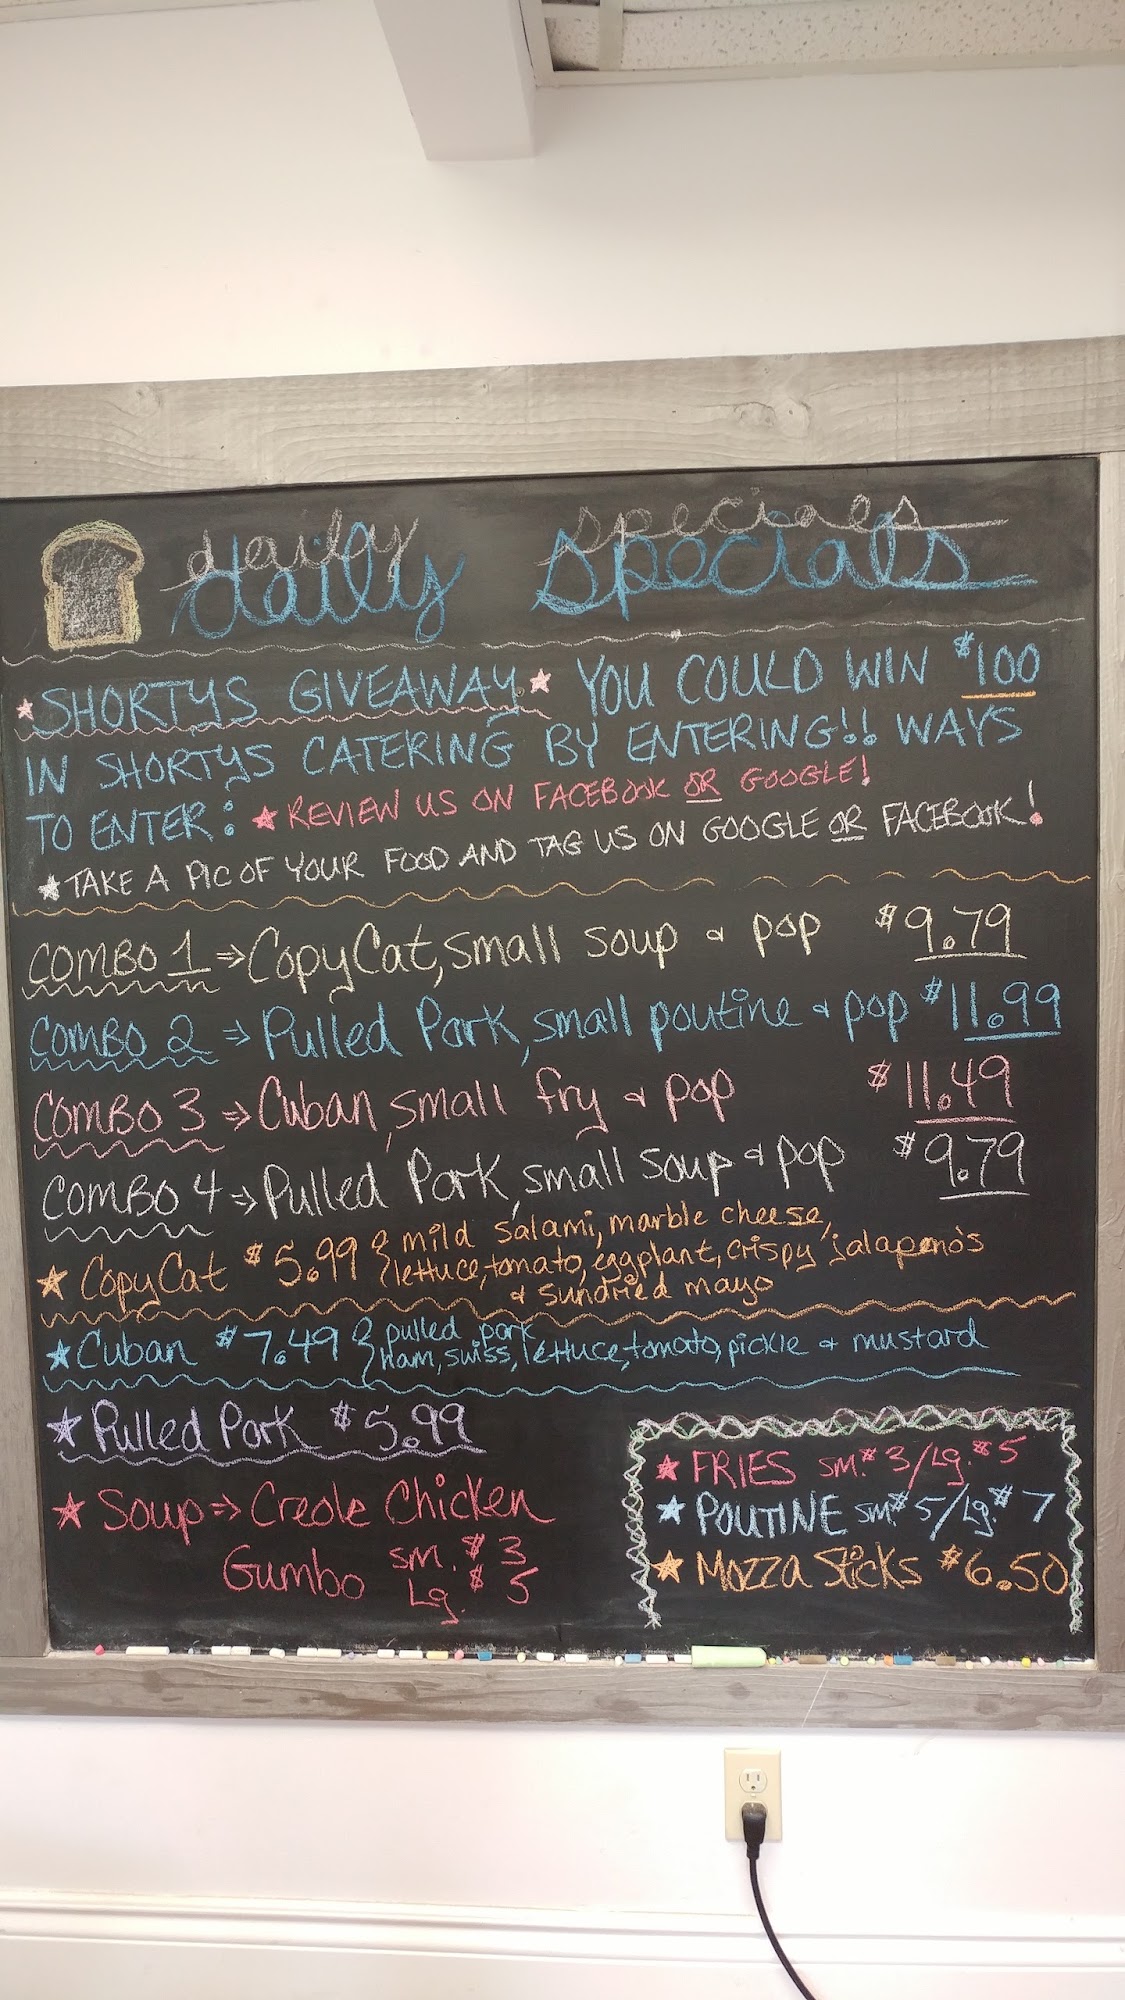 daily specials
SHORTYS GIVEAWAY YOU COULD WIN $100
IN SHORTYS CATERING BY ENTERING!! WAYS
TO ENTER: REVIEW US ON FACEBOOK OR GOOGLE!
TAKE A PIC OF YOUR FOOD AND TAG US ON GOOGLE OR FACEBOOK!
COMBO 1 ⇒ CopyCat, small soup & pop $9.79
COMBO 2 ⇒ Pulled Pork, small poutine & pop $11.99
COMBO 3 ⇒ Cuban, small fry & pop $11.49
COMBO 4 ⇒ Pulled Pork, small soup & pop $9.79
CopyCat $5.99 { mild salami, marble cheese,
lettuce, tomato, eggplant, crispy jalapeno's
& sundried mayo
Cuban $7.49 { pulled pork
ham, swiss, lettuce, tomato, pickle & mustard
Pulled Pork $5.99
Soup ⇒ Creole Chicken
Gumbo sm. $3
Lg. $5
FRIES sm. $3/Lg. $5
POUTINE sm. $5/Lg. $7
Mozza Sticks $6.50